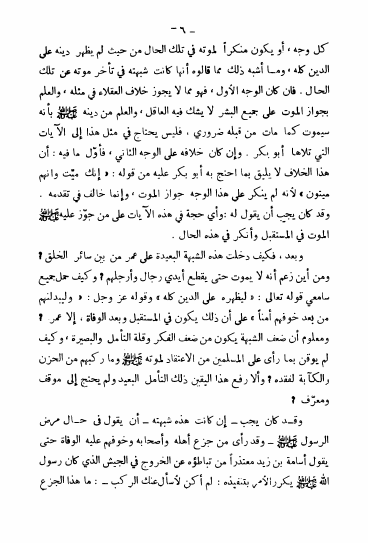 - ٦ -
كل وجه ، أو يكون منكراً لموته في تلك الحال من حيث لم يظهر دينه على
الدين كله ، وما أشبه ذلك مما قالوه أنها كانت شبهته في تأخر موته عن تلك
الحال . فان كان الوجه الاول ، فهو مما لا يجوز خلاف العقلاء في مثله ، والعلم
بجواز الموت على جميع البشر لا يشك فيه العاقل ، والعلم من دينه ﷺ بأنه
سيموت كما مات من قبله ضروري ، فليس يحتاج في مثل هذا إلى الآيات
التي تلاها أبو بكر . وإن كان خلافه على الوجه الثاني ، فأول ما فيه : أن
هذا الخلاف لا يليق بما احتج به أبو بكر عليه من قوله : « إنك ميت وانهم
ميتون » لأنه لم ينكر على هذا الوجه جواز الموت ، وإنما خالف في تقدمه .
وقد كان يجب أن يقول له : وأي حجة في هذه الآيات على من جوّز عليه ﷺ
الموت في المستقبل وأنكر في هذه الحال .
وبعد ، فكيف دخلت هذه الشبهة البعيدة على عمر من بين سائر الخلق ؟
ومن أين زعم أنه لا يموت حتى يقطع أيدي رجال وأرجلهم ؟ وكيف حمل جميع
سامعي قوله تعالى : « ليظهره على الدين كله » وقوله عز وجل : « وليبدلنهم
من بعد خوفهم أمناً » على أن ذلك يكون في المستقبل وبعد الوفاة ، إلا عمر ؟
ومعلوم أن ضعف الشبهة يكون من ضعف الفكر وقلة التأمل والبصيرة ، وكيف
لم يوقن بما رأى على المسلمين من الاعتقاد لموته ﷺ وما ركبهم من الحزن
والكآبة لفقده ؟ وألا رفع هذا اليقين ذلك التأمل البعيد ولم يحتج إلى موقف
ومعرّف ؟
وقد كان يجب – إن كانت هذه شبهته – أن يقول في حال مرض
الرسول ﷺ – وقد رأى من جزع أهله وأصحابه وخوفهم عليه الوفاة حتى
يقول أسامة بن زيد معتذراً من تباطؤه عن الخروج في الجيش الذي كان رسول
الله ﷺ يكرر الأمر بتنفيذه : لم أكن لأسأل عنك الركب – : ما هذا الجزع